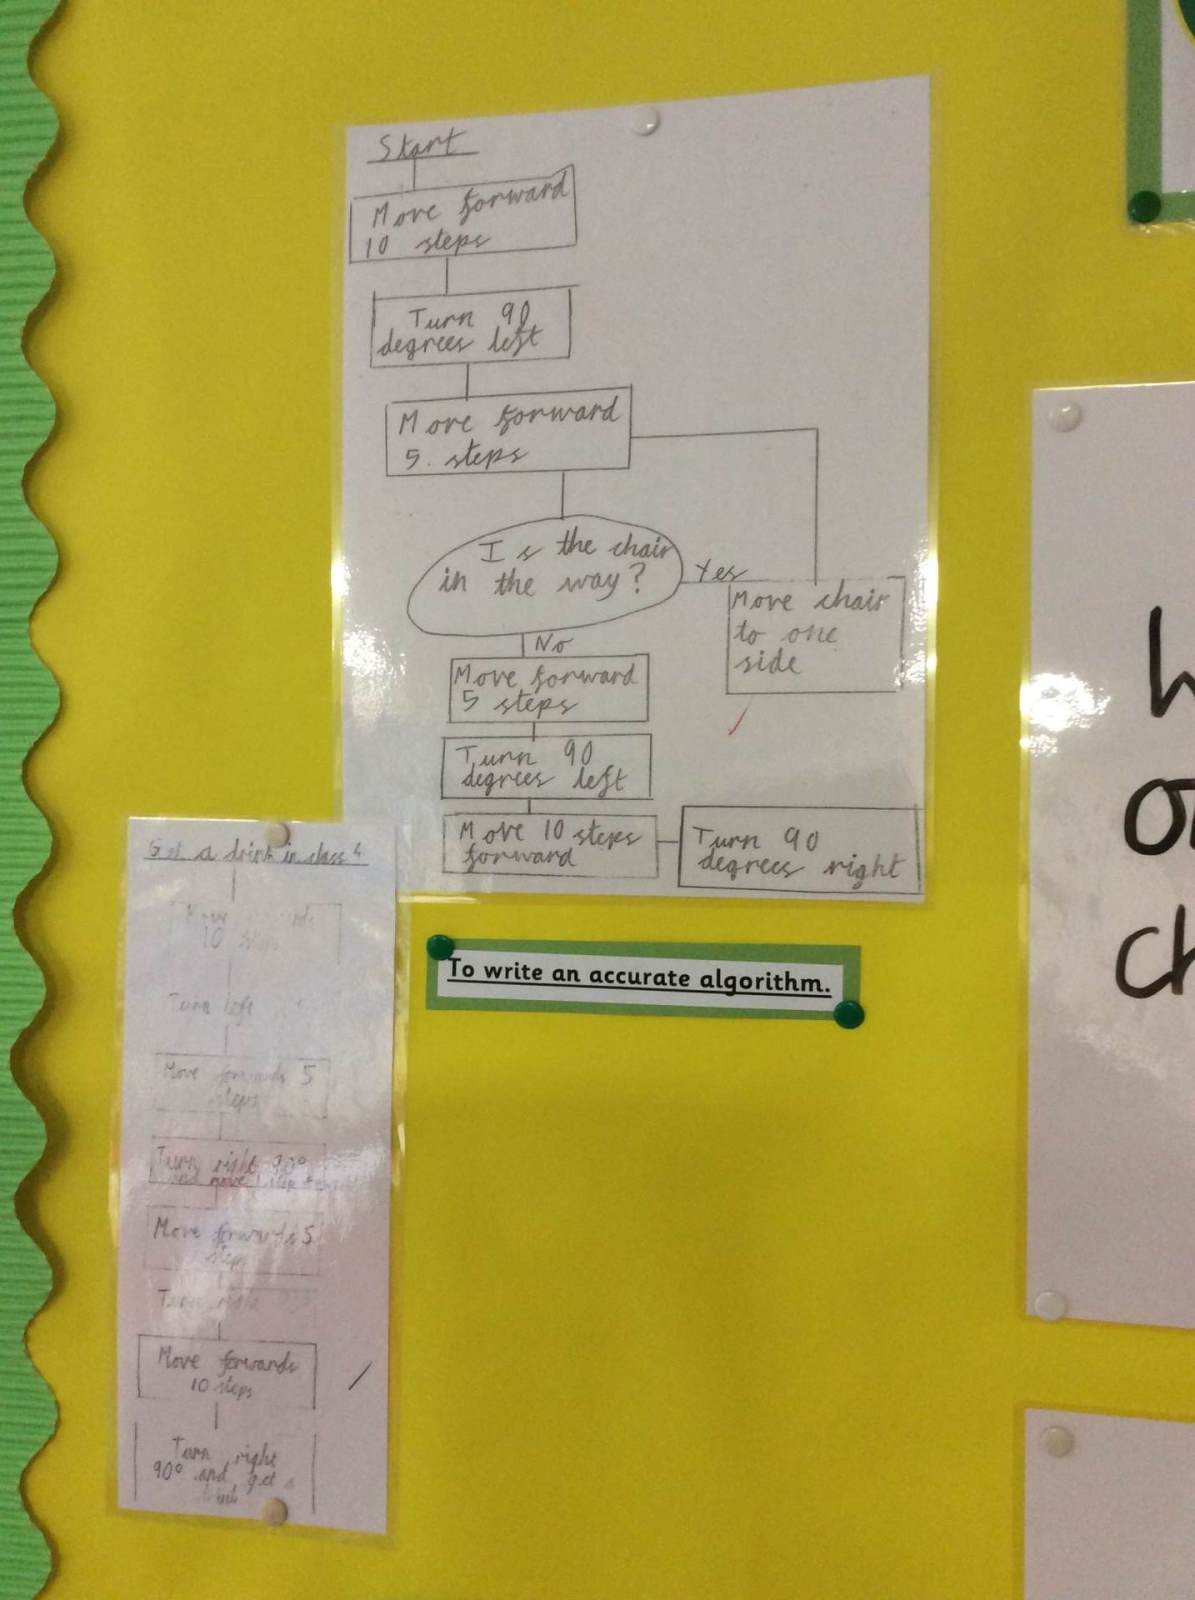 Start
Move forward
10 steps
Turn 90
degrees left
Move forward
5. steps
Is the chair
in the way?
Yes
Move chair
to one
side
No
Move forward
5 steps
Turn 90
degrees left
Move 10 steps
forward
Turn 90
degrees right
To write an accurate algorithm.
Get a drink in class 4
Move
10 steps
Turn left
Move forwards 5
steps
Turn right 90°
and move 1 step
Move forwards 5
steps
Turn right
Move forwards
10 steps
Turn right
90° and get a
drink